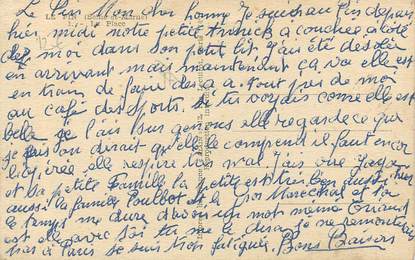 Le Pin Mon cher homme Je suis au Pin depuis
hier midi notre petite Annick a couchée a coté
de moi dans son petit lit j'ai été desolé
en arrivant mais maintenant ça va elle est
en train de faire des a a. tout près de moi
au café des Sports. Si tu voyais comme elle est
belle je l'ais sur genous elle regarde ce que
je fais on dirait qu'elle le comprend il faut encor
elle respire mal J'ais vue
et la petite Famille la petite est très bien
aussi la famille Poulbot et le Gros Marechal
le temps me dure d'avoir un mot meme
est elle avec toi tu me le diras je ne remonterai
pas à Paris je suis trop fatiguée. Bons Baisers
LE PIN (Seine-et-Marne)
La Place